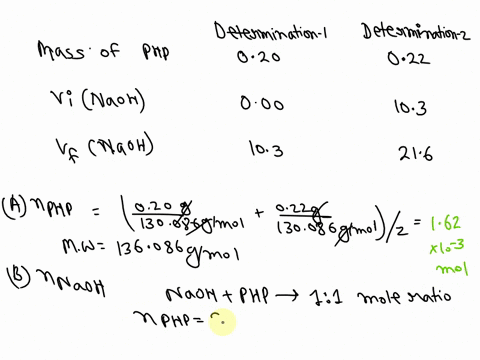 Determination-1 Determination-2
Mass of PHP 0.20 0.22
Vi (NaOH) 0.00 10.3
Vf (NaOH) 10.3 21.6
(A) nPHP = (0.20 g / 130.086 g/mol + 0.22 g / 130.086 g/mol) / 2 = 1.62 ×10⁻³ mol
M.W = 136.086 g/mol
(B) nNaOH
NaOH + PHP → 1:1 mole ratio
nPHP =